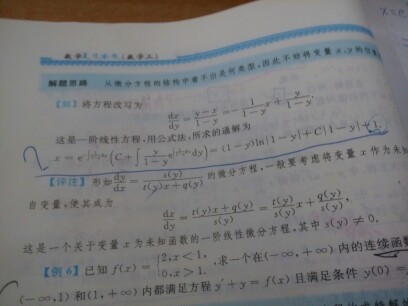 数学 (数学三)
解题思路 从微分方程的结构中看不出是何类型,因此不妨将变量 x,y 的位置
【解】将方程改写为
dx/dy = (y-x)/(1-y) = -1/(1-y) x + y/(1-y).
这是一阶线性方程,用公式法,所求的通解为
2 x = e (C + ∫ y/(1-y) e dy) = (1-y)ln|1-y| + C|1-y| + 1.
【评注】形如 dy/dx = s(y)/(t(y)x+q(y)) 的微分方程,一般要考虑将变量 x 作为未知
自变量,使其成为
dx/dy = (t(y)x+q(y))/s(y) = t(y)/s(y) x + q(y)/s(y),
这是一个关于变量 x 为未知函数的一阶线性微分方程,其中 s(y) ≠ 0.
【例6】已知 f(x) = {2, x<1, 0, x>1. 求一个在(-∞,+∞)内的连续函数
(-∞,1)和(1,+∞)内都满足方程 y'+y=f(x) 且满足条件 y(0) =